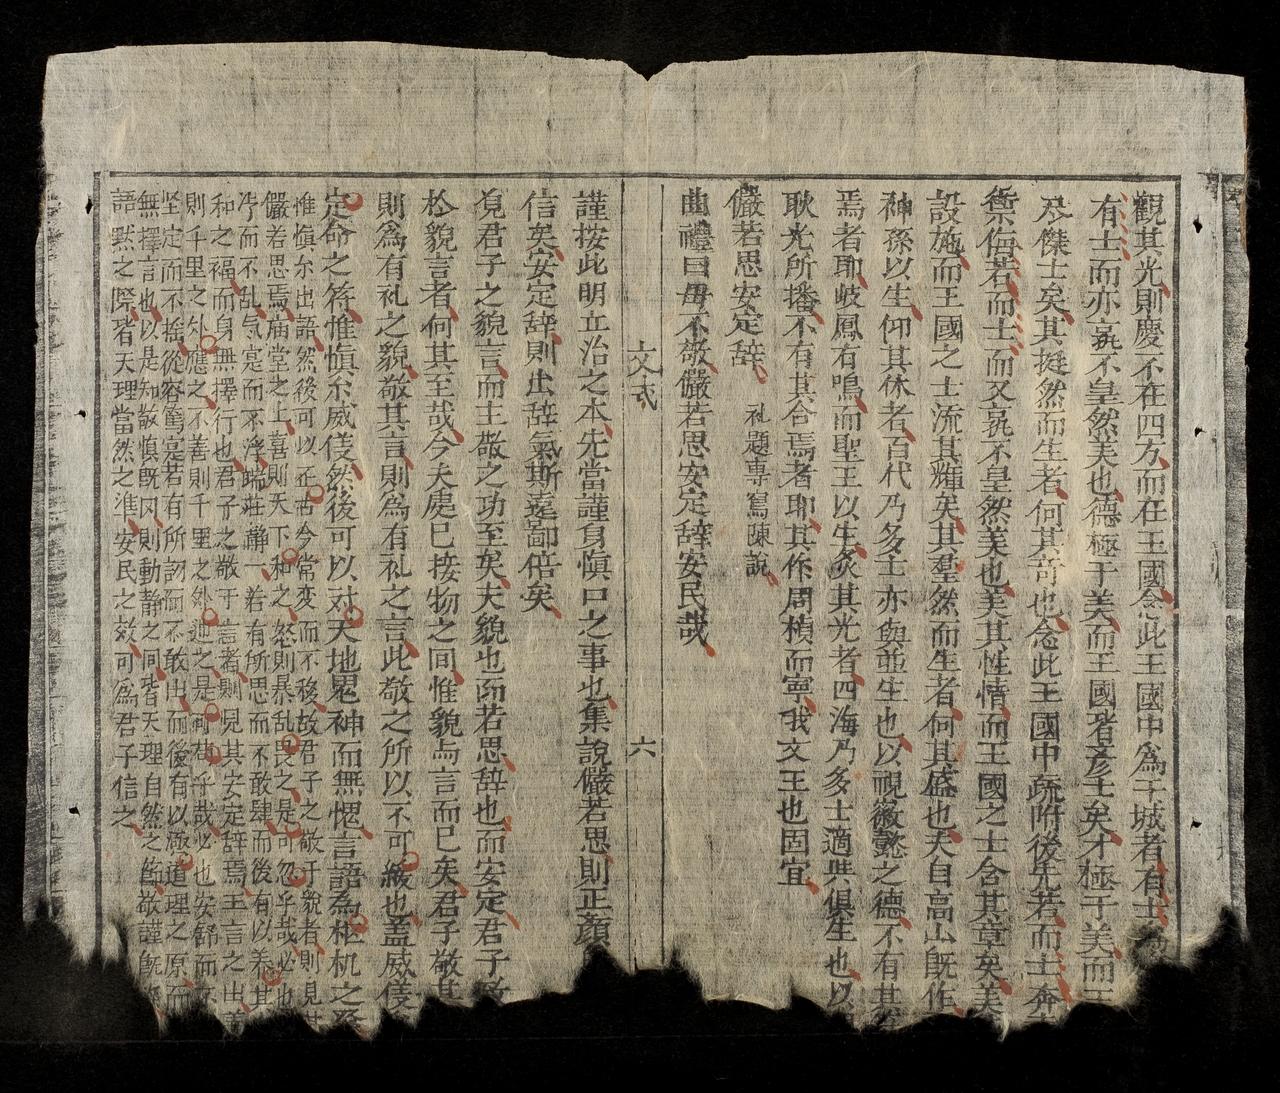 觀其光則慶不在四方而在王國念此王國中為干城者有士為
有士而亦孰不皇然美也德極于美而王國者彥士矣才極于美而王
及傑士矣其挺然而生者何其奇也念此王國中疏附後先若而士奔
禦侮若而士而又孰不皇然美也美其性情而王國之士含其章矣美
設施而王國之士流其輝矣其羣然而生者何其盛也天自高山旣作
神孫以生仰其休者百代乃多士亦與並生也以視徽懿之德不有其
焉者耶岐鳳有鳴而聖王以生炙其光者四海乃多士適與俱生也以
耿光所播不有其合焉者耶其作周楨而寧我文王也固宜
儼若思安定辞 礼題專寫陳說
曲禮曰毋不敬儼若思安定辞安民哉
文式 六
謹按此明立治之本先當謹身愼口之事也集說儼若思則正顏
信矣安定辞則出辞氣斯遠鄙倍矣
見君子之貌言而主敬之功至矣夫貌也而若思辞也而安定君子敬
於貌言者何其至哉今夫處已接物之间惟貌与言而已矣君子敬其
則為有礼之貌敬其言則為有礼之言此敬之所以不可緩也盖威儀
定命之符惟愼尔威儀然後可以对天地鬼神而無愧言語為枢机之發
惟愼尔出語然後可以正古今常変而不移故君子之敬于貌者則見其
儼若思焉庙堂之上喜則天下和之怒則暴乱畏之是可忽乎哉必也
浮而不乱氣定而不浮端莊靜一若有所思而不敢肆而後有以养其
和之福而身無擇行也君子之敬于言者則見其安定辞焉王言之出善
則千里之外應之不善則千里之外迯之是可苟乎哉必也安舒而
坚定而不搖從容篤寔若有所訒而不敢出而後有以極道理之原而
無擇言也以是知敬愼旣冈則動静之间皆天理自然之節敬謹旣
語黙之際皆天理當然之準安民之效可為君子信之